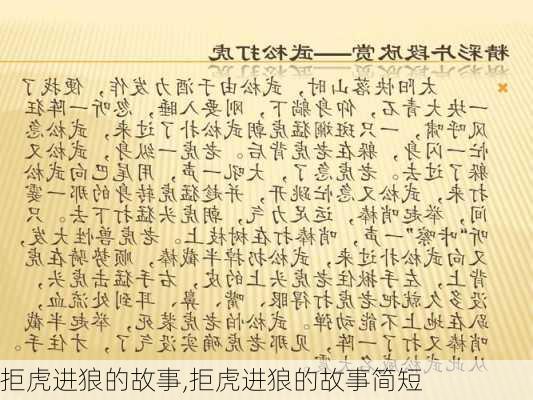 精彩片段欣赏——武松打虎
太阳快落山时，武松由于酒力发作，便找了
一块大青石，仰身躺下，刚要入睡，忽听一阵狂
风呼啸，一只斑斓猛虎朝武松扑了过来，武松急
忙一闪身，躲在老虎背后。老虎一纵身，武松又
躲了过去。老虎急了，大吼一声，用尾巴向武松
打来，武松又急忙跳开，并趁猛虎转身的那一霎
间，举起哨棒，运足力气，朝虎头猛打下去。只
听“咔嚓”一声，哨棒打在树枝上。老虎兽性大发，
又向武松扑过来，武松扔掉半截棒，顺势骑在虎
背上，左手揪住老虎头上的皮，右手猛击虎头，
没多久就把老虎打得眼、嘴、鼻、耳到处流血，
趴在地上不能动弹。武松怕老虎装死，举起半截
哨棒又打了一阵，见那老虎确实没气了，才住手。
从此武松威名大震
拒虎进狼的故事,拒虎进狼的故事简短